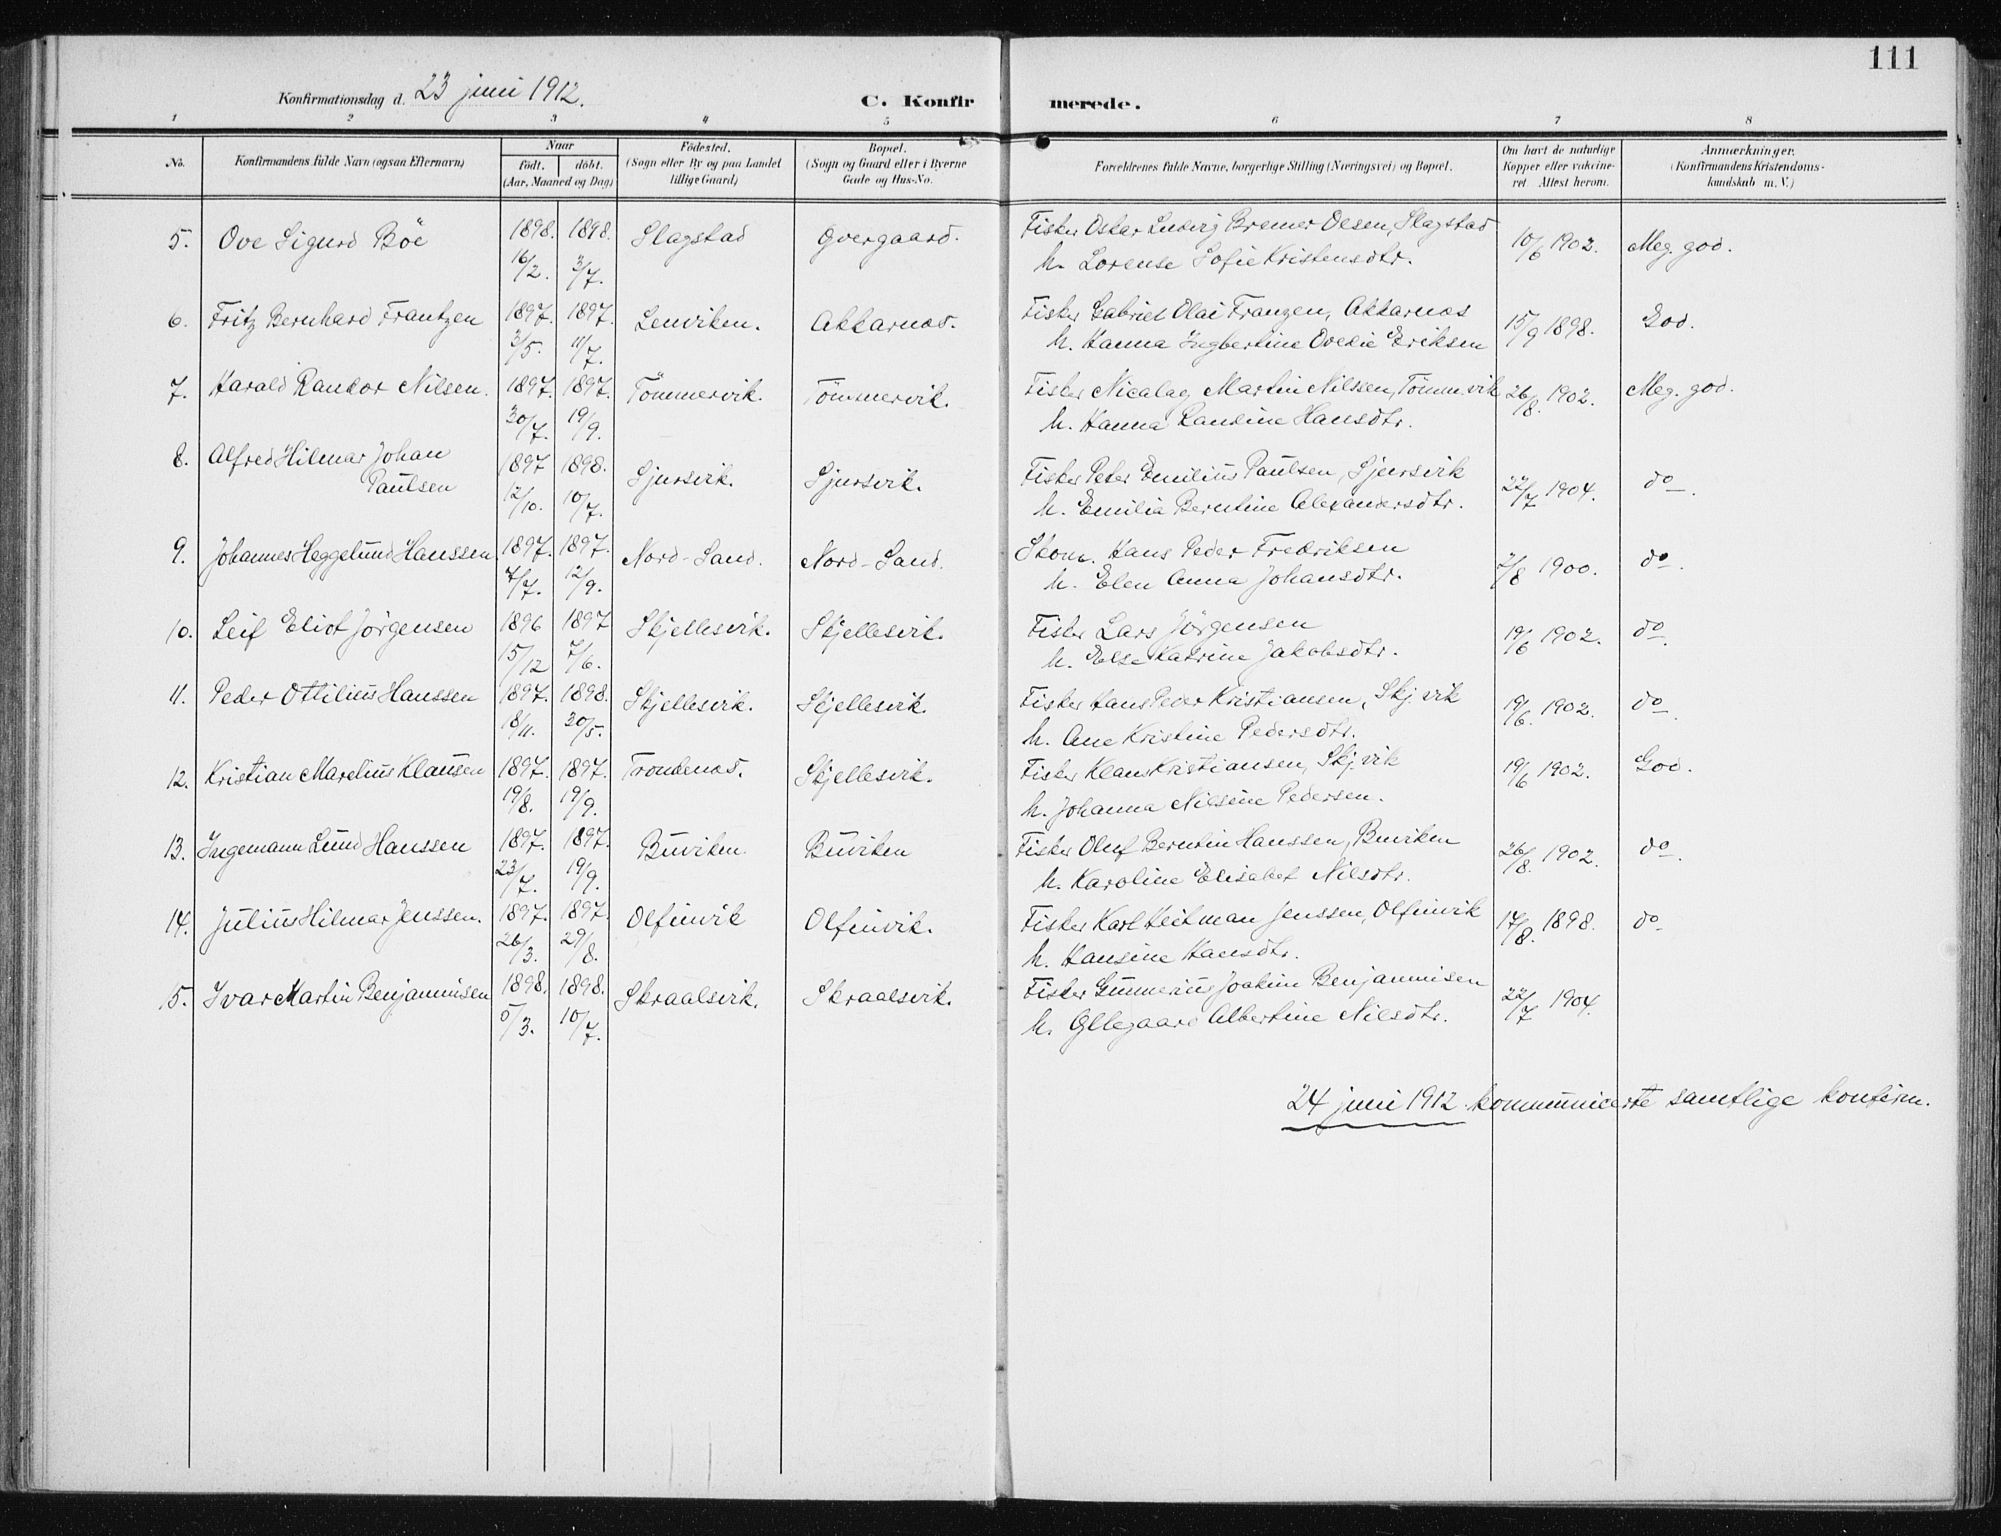 111
Konfirmationsdag d. 23 juni 1912. C. Konfirmerede.
1 2 3 4 5 6 7 8
No. Konfirmandens fulde Navn (ogsaa Efternavn) Naar født. døbt. (Aar, Maaned og Dag) Fødested. (Sogn eller By og paa Landet tillige Gaard) Bopæl. (Sogn og Gaard eller i Byerne Gade og Hus-No. Forældrenes fulde Navne, borgerlige Stilling (Næringsvei) og Bopæl. Om havt de naturlige Kopper eller vakcineret Attest herom. Anmærkninger. (Konfirmandens Kristendomskundskab m. V.)
5. Ove Sigurd Böe 1898. 16/2. 1898. 3/7. Slagstad Overgaard. Fisker Oskar Ludvig Bremer Olsen, Slagstad
h. Lorense Sofie Kristensdtr. 10/6 1902. Meg. god.
6. Fritz Bernhard Frantzen 1897. 3/5. 1897. 11/7. Lenviken. Akkarnæs. Fisker Gabriel Olai Franzen, Akkarnæs
h. Hanna Ingbertine Ovedie Eriksen 15/9 1898. God.
7. Harald Randor Nilsen. 1897. 30/7. 1897. 19/9. Tömmervik. Tömmervik. Fisker Nicalay Martin Nilssen, Tömm.vik
h. Hanna Randine Hansdtr. 26/8. 1902. Meg. god.
8. Alfred Hilmar Johan
Paulsen 1897 12/10. 1898. 10/7. Sjursvik. Sjursvik. Fisker Peter Emilius Paulsen, Sjursvik
h. Emilia Berntine Alexandersdtr. 22/7 1904. do.
9. Johannes Heggelund Hanssen 1897. 7/7. 1897. 12/9. Nord-Sand. Nord-Sand. Skom. Hans Peder Fredriksen
h. Elen Anna Johansdtr. 7/8 1900. do.
10. Leif Eliot Jörgensen 1896 15/12 1897 7/6. Skjellesvik. Skjellesvik. Fisker Lars Jörgensen
h. Else Katrine Jakobsdtr. 19/6 1902. do.
11. Peder Ottilius Hanssen 1897. 18/11. 1898. 20/5. Skjellesvik. Skjellesvik. Fisker Hans Peder Kristiansen, Skj.vik
h. Ane Kristine Pedersdtr. 19/6. 1902. do.
12. Kristian Marelius Klausen 1897. 19/8. 1897. 19/9. Trondenæs. Skjellesvik. Fisker Klaus Kristiansen, Skj.vik
h. Johanna Nilsine Pedersen. 19/6 1902. God.
13. Ingemann Lund Hanssen 1897. 23/7. 1897. 19/9. Buviken. Buviken Fisker Oluf Berntin Hanssen, Buviken
h. Karoline Elisabet Nilsdtr. 26/8. 1902. do.
14. Julius Hilmar Jenssen. 1897. 26/3. 1897. 29/8. Olfinvik Olfinvik. Fisker Karl Heitman Jenssen, Olfinvik
h. Hansine Hansdtr. 17/8. 1898. do
5. Ivar Martin Benjaminsen 1898. 5/3. 1898. 10/7. Skraalsvik. Skraalsvik. Fisker Gunnerius Joakim Benjaminsen
h. Ollegaard Albertine Nilsdtr. 22/7 1904.
24 juni 1912 kommunicerte samtlige konfirm.